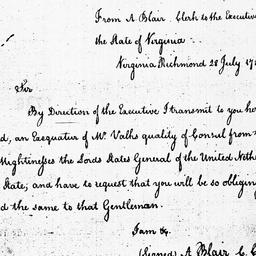 From A. Blair Clerk to the Executive
the State of Virginia.
Virginia Richmond 28 July 17
Sir
By Direction of the Executive I transmit to you
an Exequatur of Mr. Valks quality of Consul from
Mightinesses the Lords States General of the United
State; and have to request that you will be so
the same to that Gentleman.
I am &c.
(Signed) A. Blair C. C